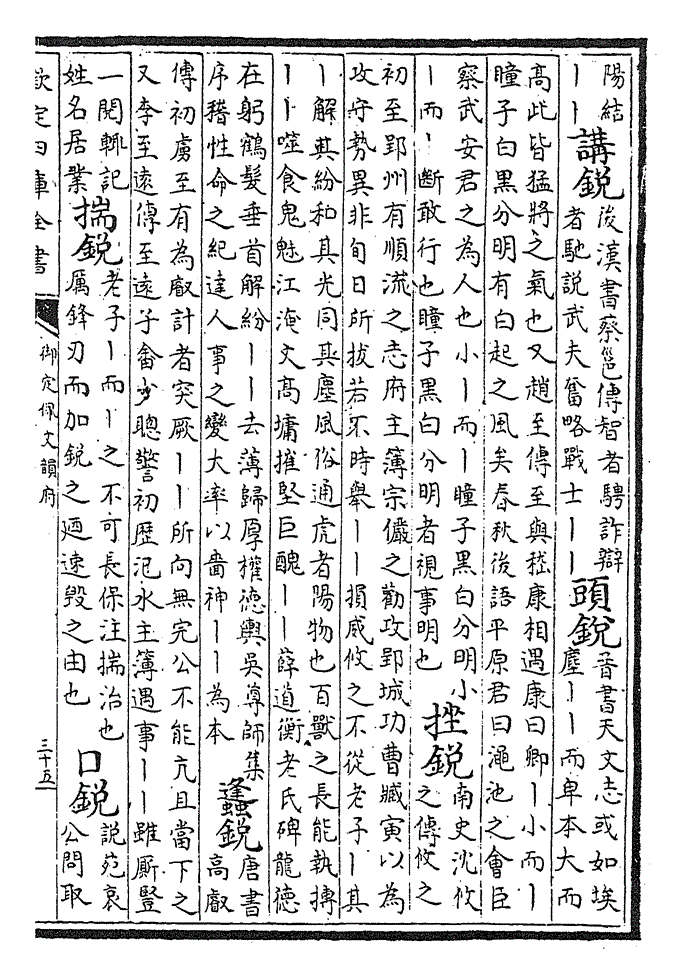 陽結
丨丨
講銳
後漢書蔡邕傳智者騁詐辯
者馳說武夫奮略戰士丨丨
頭銳
晉書天文志或如埃
塵丨丨而卑本大而
高此皆猛將之氣也又趙至傳至與嵇康相遇康曰卿丨小而丨
瞳子白黑分明有白起之風矣春秋後語平原君曰澠池之會臣
察武安君之為人也小丨而丨瞳子黑白分明小
丨而丨斷敢行也瞳子黑白分明者視事明也
挫銳
南史沈攸
之傳攸之
初至郢州有順流之志府主簿宗儼之勸攻郢城功曹臧寅以為
攻守勢異非旬日所拔若不時舉丨丨損威攸之不從老子丨其
丨解其紛和其光同其塵風俗通虎者陽物也百獸之長能執搏
丨丨噬食鬼魅江淹文高墉摧堅巨醜丨丨薛道衡老氏碑龍德
在躬鶴髮垂首解紛丨丨去薄歸厚權德輿吳尊師集
序稽性命之紀達人事之變大率以嗇神丨丨為本
蠭銳
唐書
高叡
傳初虜至有為叡計者突厥丨丨所向無完公不能亢且當下之
又李至遠傳至遠子畬少聰警初歷汜水主簿遇事丨丨雖厮豎
一閱輒記
姓名居業
揣銳
老子丨而丨之不可長保注揣治也
厲鋒刃而加銳之迺速毀之由也
口銳
說苑哀
公問取
欽定四庫全書
御定佩文韻府
三十五